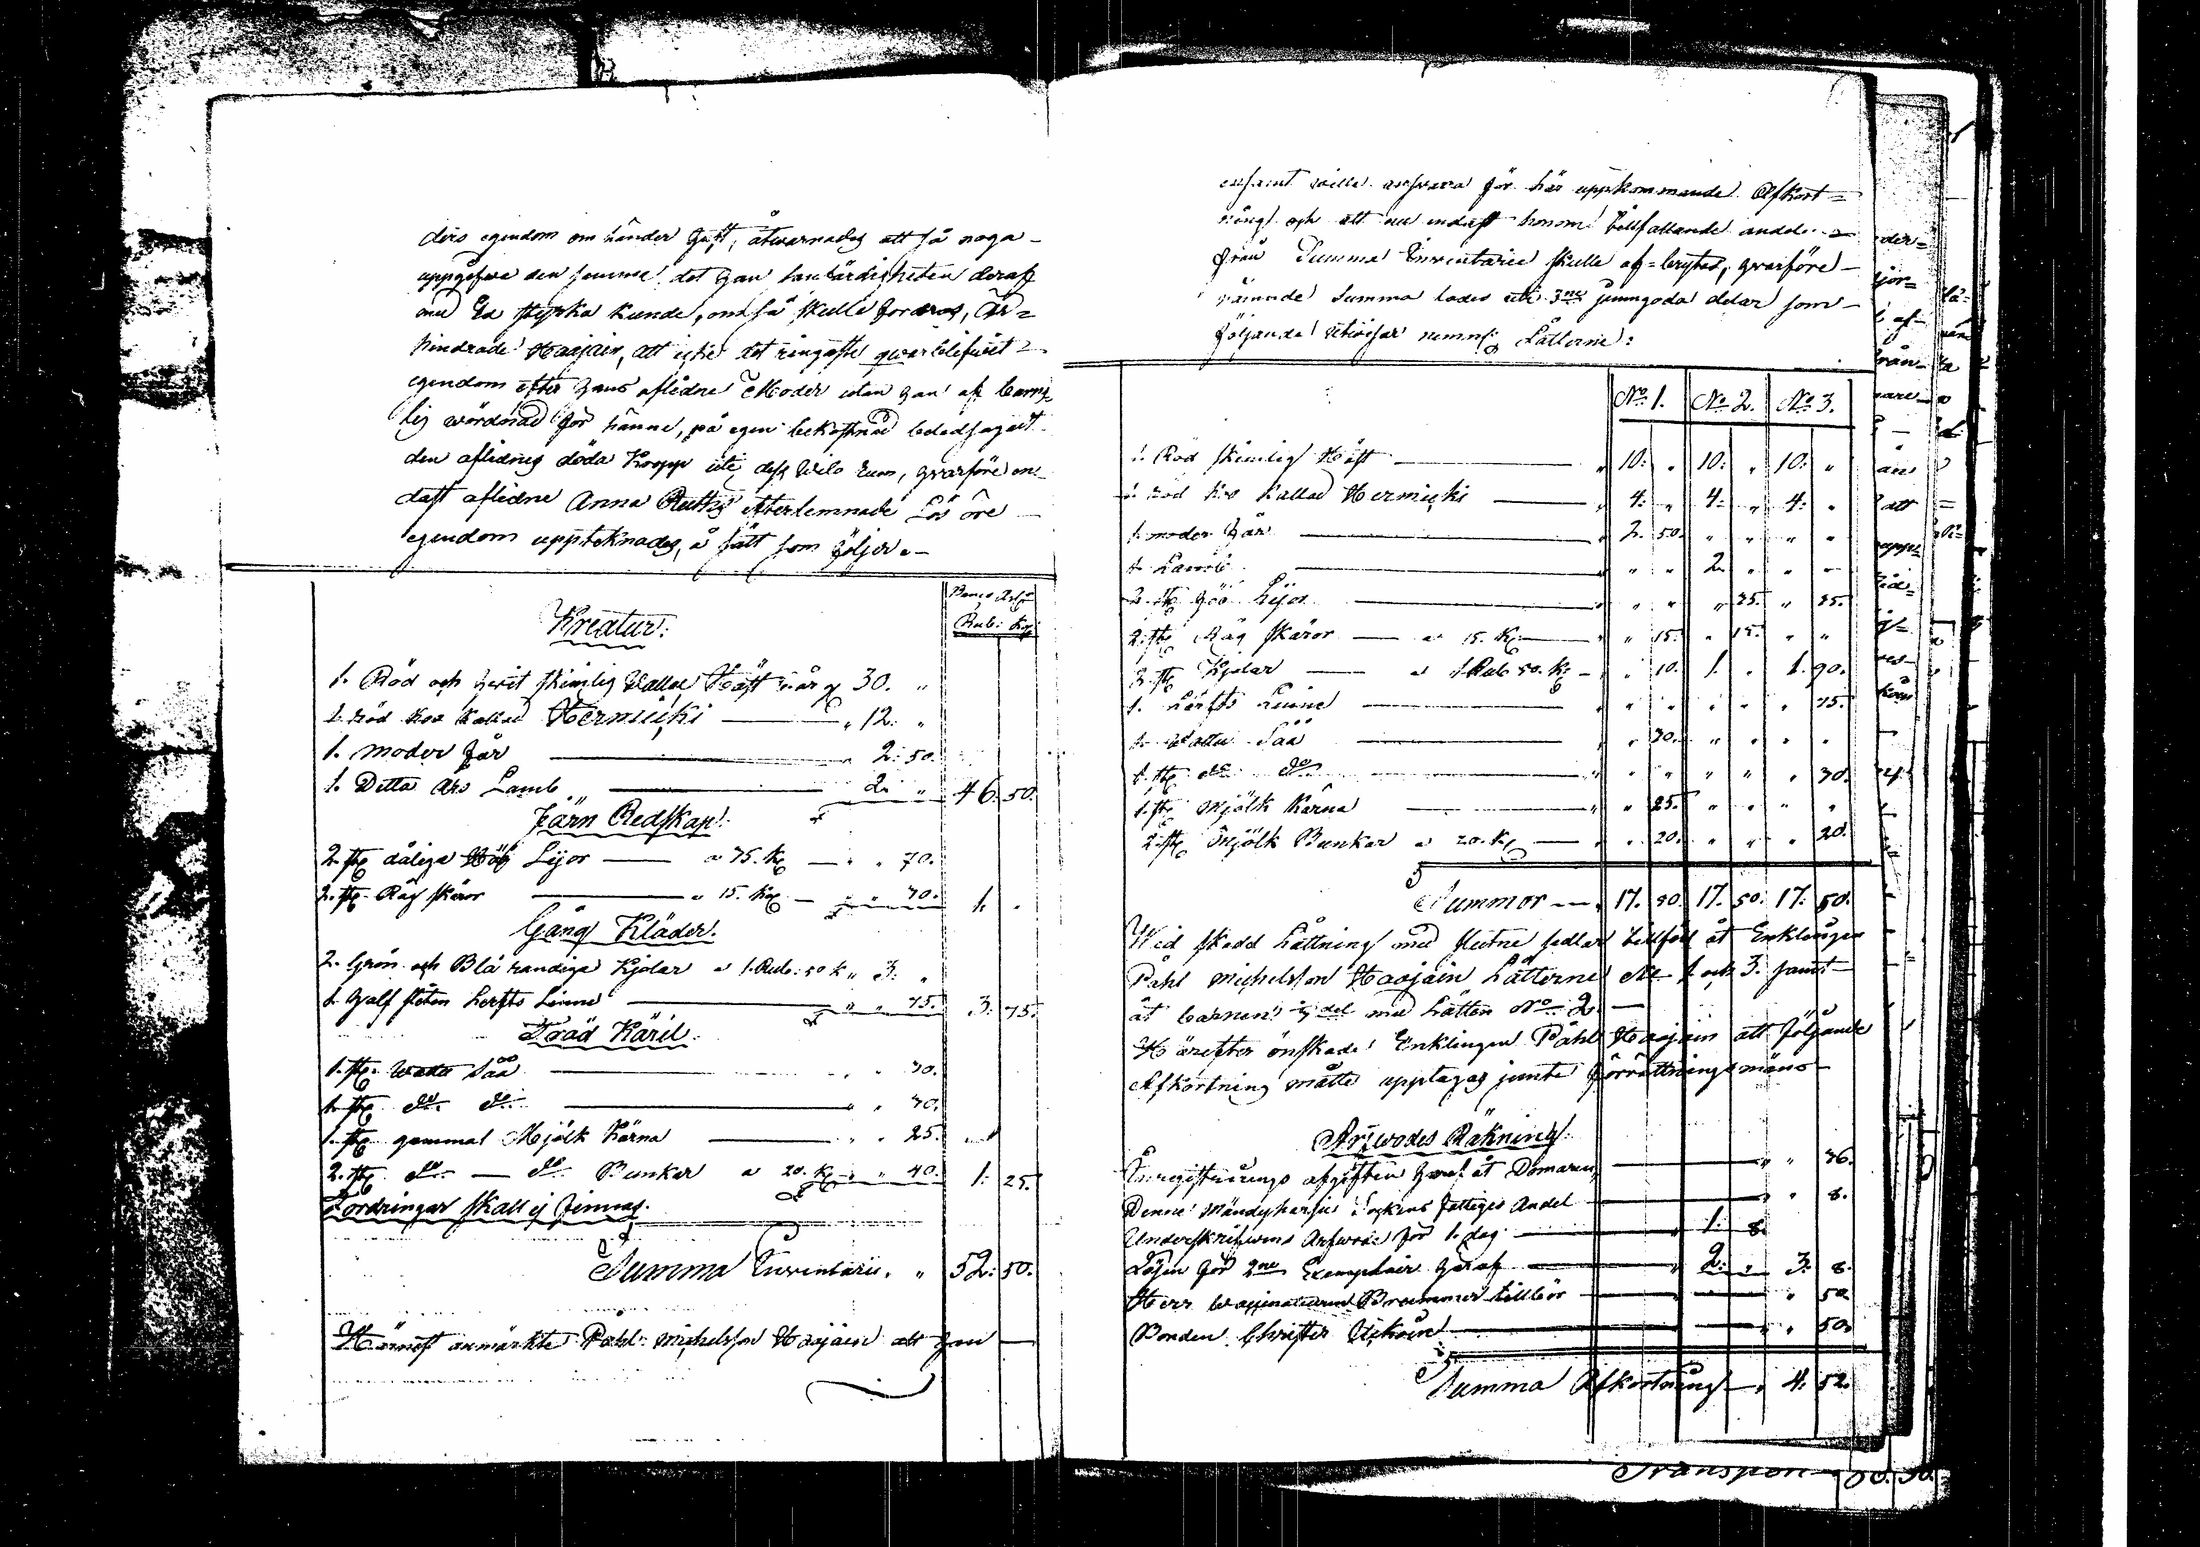 ders egendom om händer haft, åtwarnades att så noga
uppgifwa den samma det han sanfärdigheten deraf
med Ed styrka kunde, om så skulle fordras, Är=
hindrade Haajain, att icke det ringaste qwarblifwit
egendom efter hans aflidne Moder utan han af barns
lig wördnad för henne, på egen bekostnad beledsagat
den aflidnes döda Kropp uti dess hwilo rum, hwarföre en
dast aflidne Anna efterlemnade Lös öre
egendom upptecknades, å sätt som följer

Banco Ass
Rub: Kop
Kreatur:
1. Röd och hwit skimlig Vallac Häst 30. "
1. röd Ko kallad Hermicki " 12. "
1. moder får " 2. 50.
1. Ditto Års Lamb 2. " 46. 50.
Järn Redskap:
2. st. dåliga Höö Lijor a 35. K " " 70.
2. st. Råg skäror a 15. Kop " " 30. 1. "
Gång Kläder.
2. Grön och Blå randiga Kjolar a 1. Rub: 50 K " 3. "
1. half sliten Lerfts Linne " " 75. 3. 75.
Träd Käril
1. st. watu Såå " " 30.
1. st. do do " " 30.
1. st. gammal Mjölk Kärna " " 25.
2. st. do do Bunkar a 20. K " " 40. 1. 25.
Fordringar skall ej finnas.
Summa Inventarii. " 52. 50.
Härnäst anmärkte Påhl Michelsson Haajain att han

ensamt wille answara för här uppkommande Afkort=
ning och att nu endast honom tillfallande andel
från Summa Inventarii skulle af=brytas, hwarföre
nämnde Summa lades uti 3ne jemngoda delar som
följande utwisar neml: Låtterne:
No 1. No 2. No 3.
1. Röd skimlig Häst " 10. " 10. " 10. "
1. röd Ko kallad Hermicki " 4. " 4. " 4. "
1. moder får 2. 50. " " " "
1. Lamb " " 2. " " "
2. st. höö Lijor " " " 35. " 35.
2. st. Råg skäror a 15. K " " 15. " 15. " "
2. st. Kjolar a 1 Rub 50. K " 10. 1. " 1. 90.
1. Lärfts Linne " " " " " 75.
1. Watu Såå " 30. " " " "
1. st. do do " " " " " 30.
1. st. Mjölk Kärna " 25. " " " "
2. st. Mjölk Bunkar a 20. K " 20. " " " 20.
Summor 17. 50. 17. 50. 17. 50.
Wid skedd Låttning med slutne sedlar tillföll åt Enklingen
Påhl Michelsson Haajain Låtterne No 1 och 3. samt
åt barnens del med Låtten No 2.
Härefter önskade Enklingen Påhl Haajain att följande
Afkortning måtte upptagas jemte förrättningsmäns
Arfwodes Räkning:
Inregistrerings afgiften häraf åt Domaren " " 36.
Denne Mändyharju Sockens fattiges Andel " " 8.
Underskrifwens Arfwode för 1. dag 1. 8.
Lösen för 2ne Exemplair häraf 2. " 3. 8.
Herr Brummer tillkör " 50
Bonden Christer Ucköin " " 50.
Summa Afkortning " 4. 52.
Transport